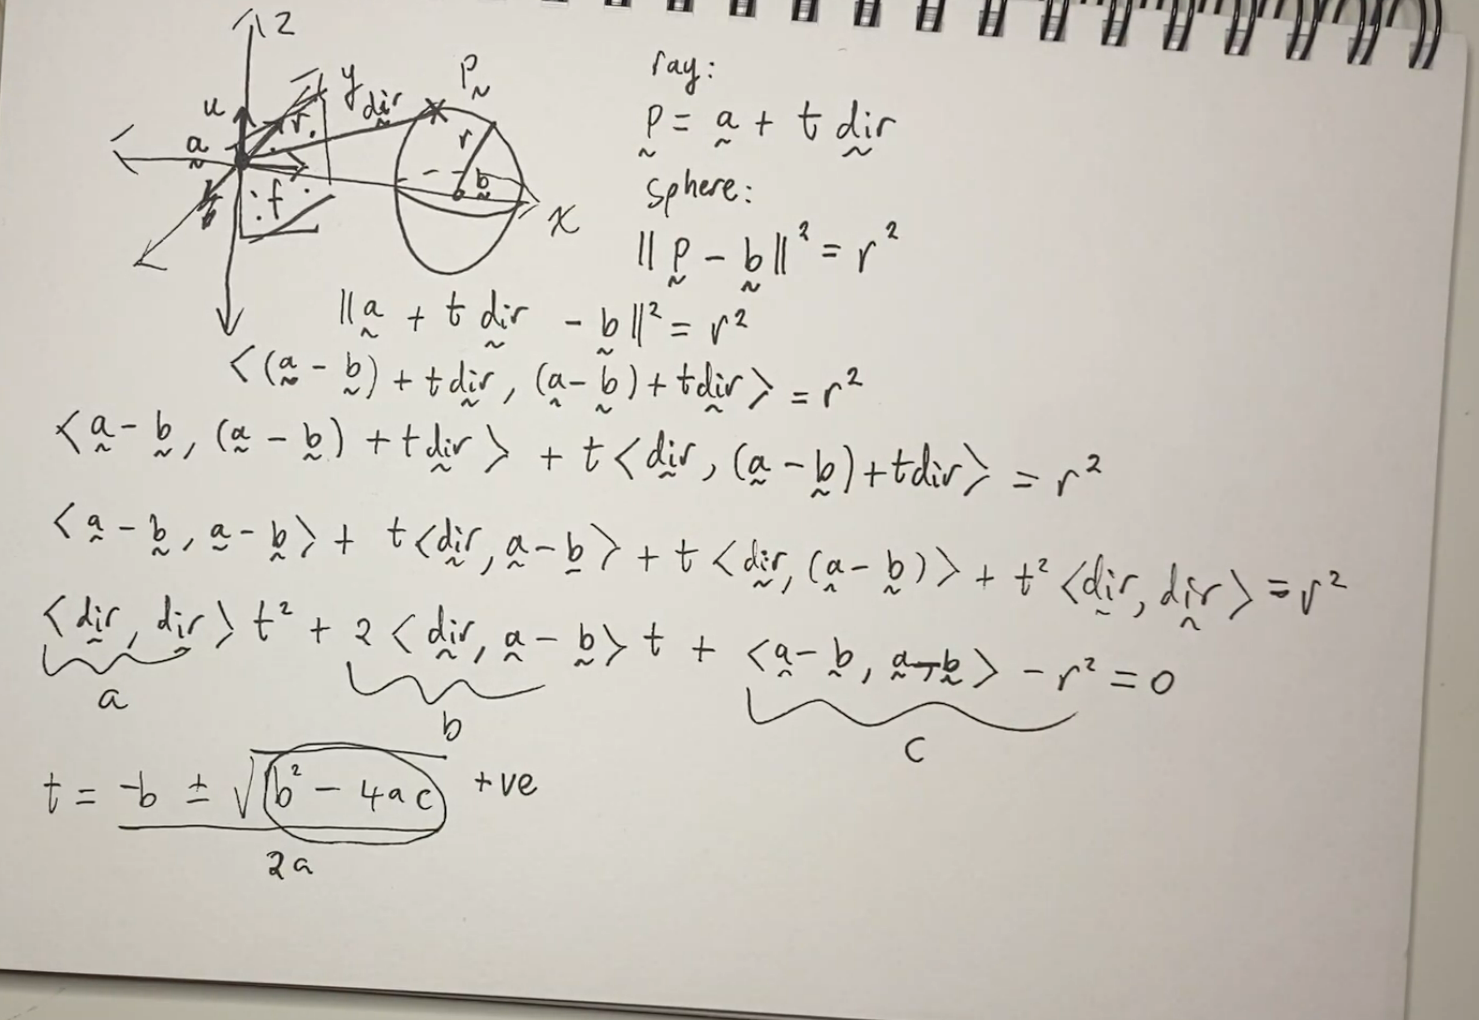 z
u
y
dir
p
a
r
r
b
f
x
ray:
p = a + t dir
sphere:
||p - b||² = r²
||a + t dir - b||² = r²
<(a - b) + t dir, (a - b) + t dir> = r²
<a - b, (a - b) + t dir> + t<dir, (a - b) + t dir> = r²
<a - b, a - b> + t<dir, a - b> + t<dir, (a - b)> + t²<dir, dir> = r²
<dir, dir> t² + 2<dir, a - b> t + <a - b, a - b> - r² = 0
a
b
c
t = -b ± √(b² - 4ac) +ve
2a